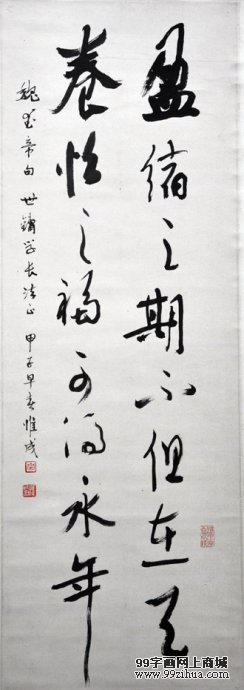 盈缩之期不但在天
养怡之福可得永年
魏武帝句 世镛学长法正 甲子早春惟成
99字画网上商城
www.99zihua.com